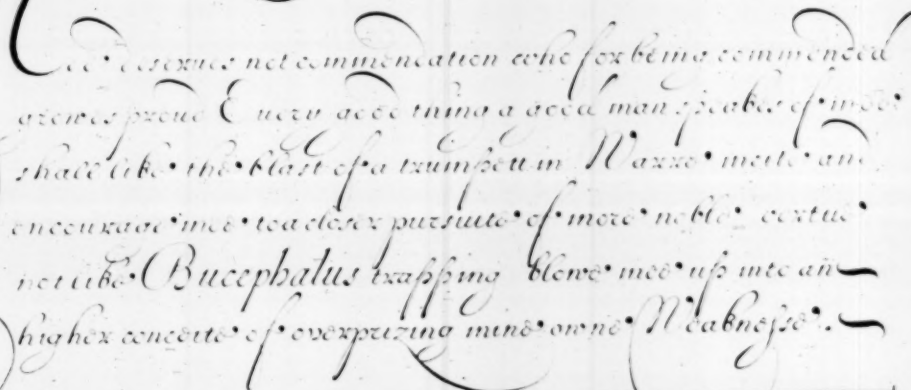 Hee deserues not commendation who for being commended
growes proud Euery good thing a good man speakes of mee
shall like the blast of a trumpett in Warre incite and
encourage mee to a closer pursuite of more noble vertue
not like Bucephalus trapping blowe mee up into an
higher conceite of overprizing mine owne Weaknesse.